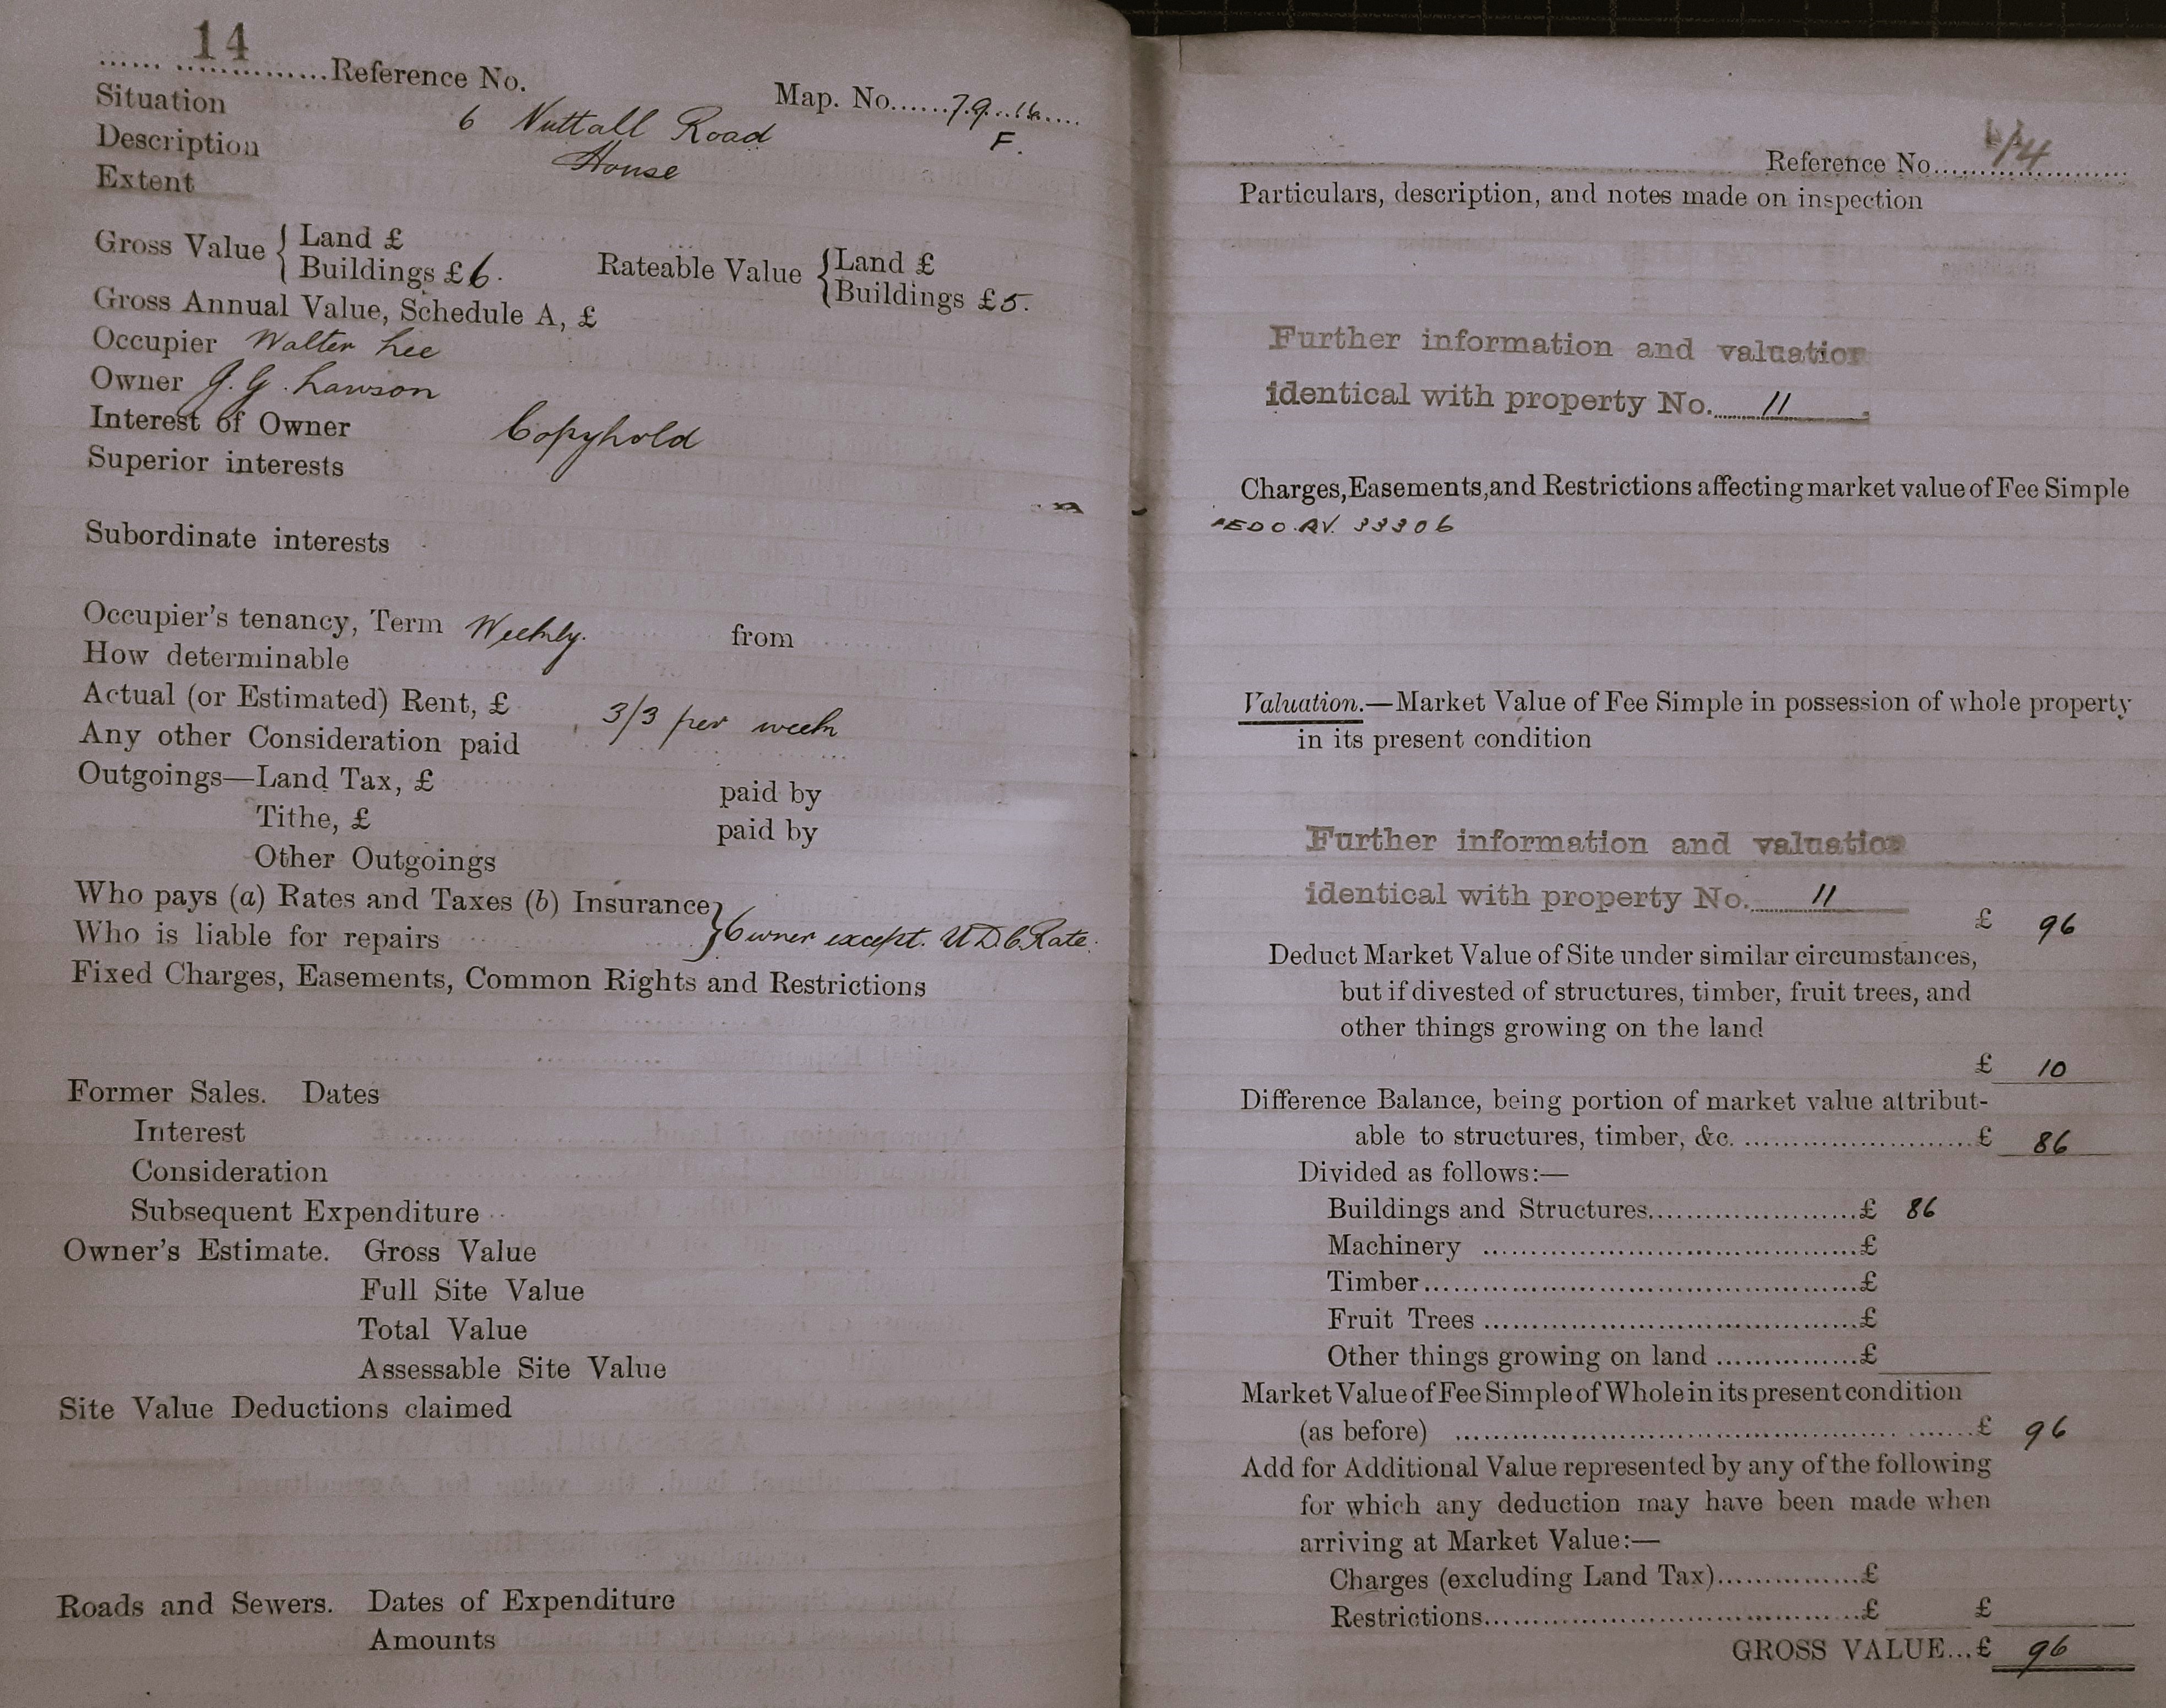 14
Reference No.
Map. No. 7.9.16
F.
Situation 6 Nuttall Road
Description House
Extent
Gross Value { Land £
Buildings £ 6.
Rateable Value { Land £
Buildings £ 5.
Gross Annual Value, Schedule A, £
Occupier Walter Lee
Owner J. G. Lawson
Interest of Owner Copyhold
Superior interests
Subordinate interests
Occupier's tenancy, Term Weekly. from
How determinable
Actual (or Estimated) Rent, £ 3/3 per week
Any other Consideration paid
Outgoings—Land Tax, £ paid by
Tithe, £ paid by
Other Outgoings
Who pays (a) Rates and Taxes (b) Insurance
Who is liable for repairs } Owner except. U D C Rate.
Fixed Charges, Easements, Common Rights and Restrictions
Former Sales. Dates
Interest
Consideration
Subsequent Expenditure
Owner's Estimate. Gross Value
Full Site Value
Total Value
Assessable Site Value
Site Value Deductions claimed
Roads and Sewers. Dates of Expenditure
Amounts
Reference No. 14
Particulars, description, and notes made on inspection
Further information and valuation
identical with property No. 11
Charges, Easements, and Restrictions affecting market value of Fee Simple
33306
Valuation.—Market Value of Fee Simple in possession of whole property
in its present condition
Further information and valuation
identical with property No. 11
£ 96
Deduct Market Value of Site under similar circumstances,
but if divested of structures, timber, fruit trees, and
other things growing on the land
£ 10
Difference Balance, being portion of market value attribut-
able to structures, timber, &c. £ 86
Divided as follows:—
Buildings and Structures £ 86
Machinery £
Timber £
Fruit Trees £
Other things growing on land £
Market Value of Fee Simple of Whole in its present condition
(as before) £ 96
Add for Additional Value represented by any of the following
for which any deduction may have been made when
arriving at Market Value:—
Charges (excluding Land Tax) £
Restrictions £ £
GROSS VALUE... £ 96